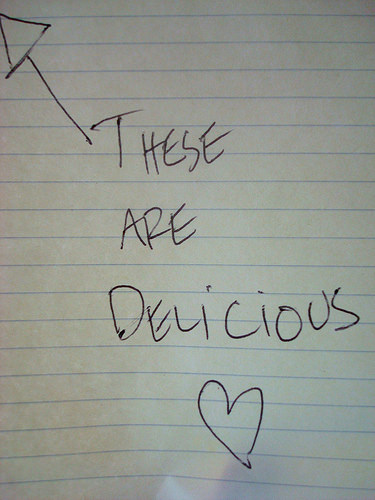 THESE
ARE
DELiCiOUS